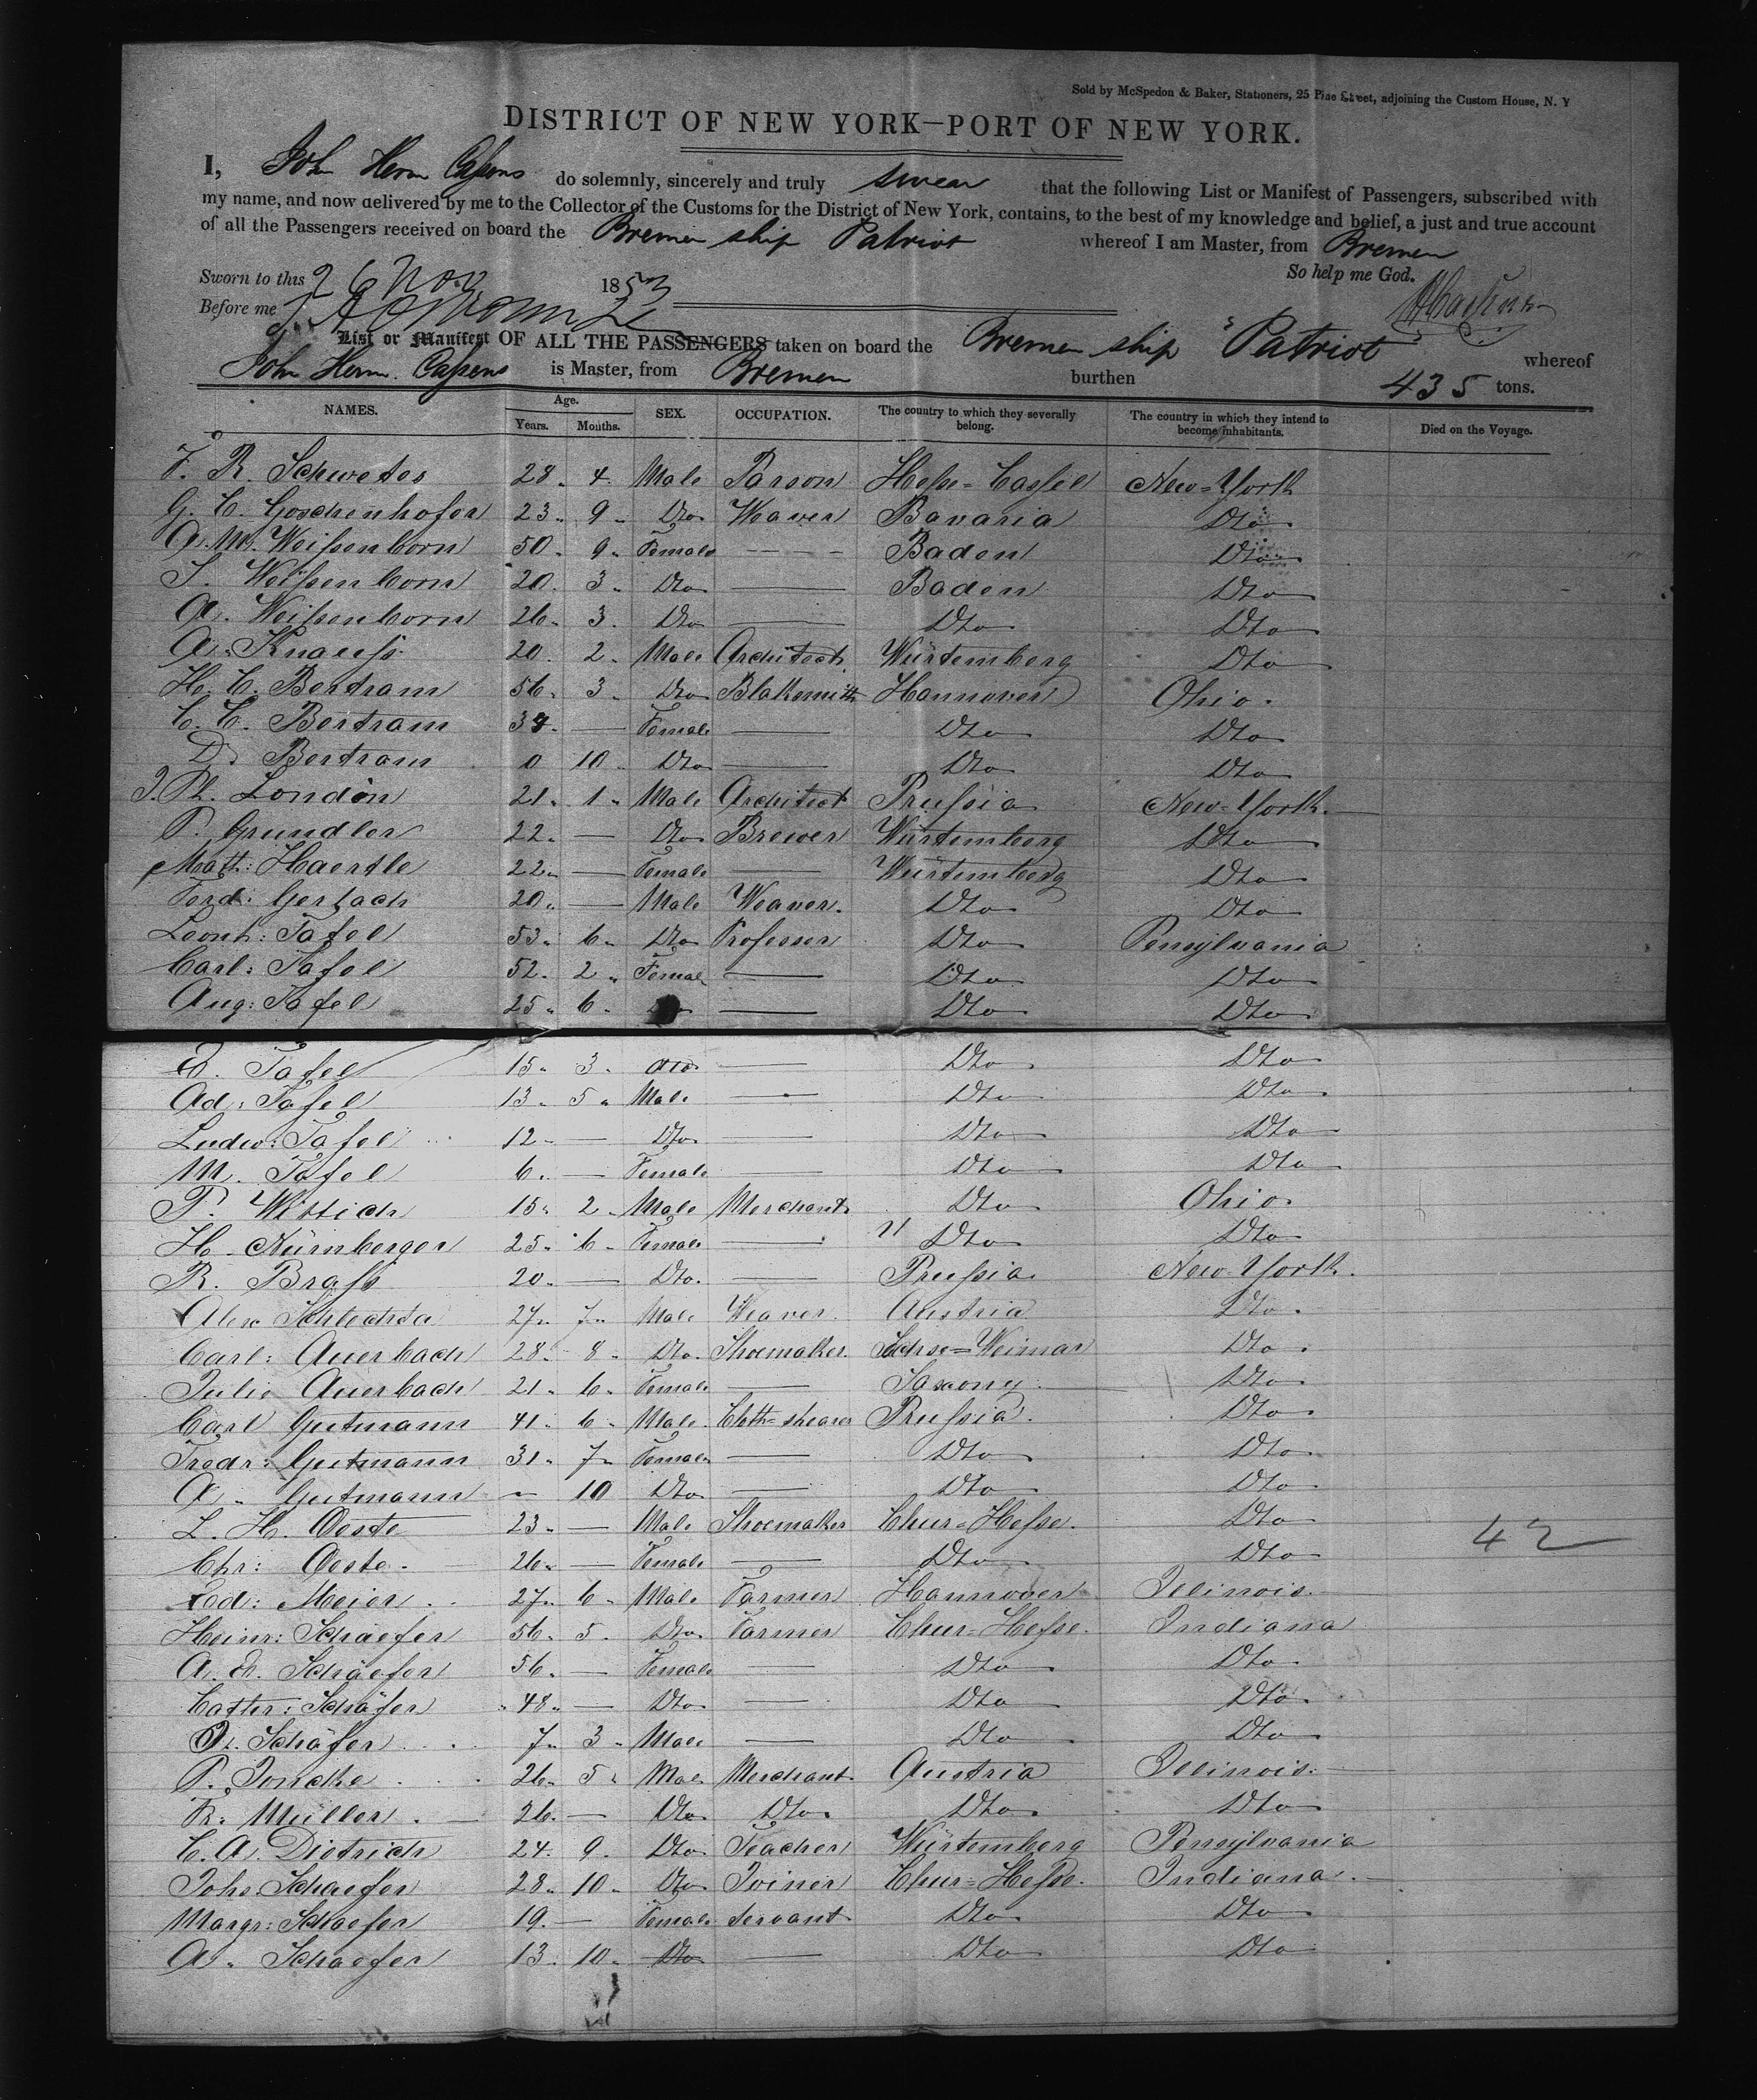 Sold by McSpedon & Baker, Stationers, 25 Pine Street, adjoining the Custom House, N. Y
DISTRICT OF NEW YORK—PORT OF NEW YORK.
I, Joh Herm Caſsens do solemnly, sincerely and truly swear that the following List or Manifest of Passengers, subscribed with
my name, and now delivered by me to the Collector of the Customs for the District of New York, contains, to the best of my knowledge and belief, a just and true account
of all the Passengers received on board the Bremen ship Patriot whereof I am Master, from Bremen
So help me God.
Sworn to this 26 Nov 1853
Before me
List or Manifest OF ALL THE PASSENGERS taken on board the Bremen ship "Patriot" whereof
Joh Herm. Caſsens is Master, from Bremen burthen 435 tons.
NAMES. Age. Years. Months. SEX. OCCUPATION. The country to which they severally belong. The country in which they intend to become inhabitants. Died on the Voyage.
F. R. Schwetes 28 4 Male Parson Heſse=Caſsel New=York
G. C. Goschenhofer 23 9 Dto Weaver Bavaria Dto
A. M. Weiſsenborn 50 9 Female Baden Dto
S. Weiſsenborn 20 3 Dto Baden Dto
A. Weiſsenborn 26 3 Dto Dto Dto
A. Knauſs 20 2 Male Architect Würtemberg Dto
H. C. Bertram 56 3 Dto Blaksmith Hannover Ohio
C. C. Bertram Female Dto Dto
D. Bertram 0 10 Dto Dto Dto
J. Ph. London 21 1 Male Architect Pruſsia New=York
P. Grundler 22 — Dto Brewer Würtemberg Dto
Math: Haertle 22 — Female Würtemberg Dto
Ferd: Gerlach 20 — Male Weaver Dto Dto
Leonh: Tafel 53 6 Dto Professor Dto Pensylvania
Carl: Tafel 52 2 Female Dto Dto
Aug: Tafel 25 6 Dto Dto
E. Tafel 15 3 Dto Dto Dto
Ad: Tafel 13 5 Male Dto Dto
Ludw: Tafel 12 — Dto Dto Dto
M. Tafel 6 — Female Dto Dto
P. Wittich 15 2 Male Merchant Dto Ohio
H. Nürnberger 25 6 Female Dto Dto
R. Braſs 20 — Dto Pruſsia New York
Alex Schlechta 27 7 Male Weaver Austria Dto
Carl: Auerbach 28 8 Dto Shoemaker Sachse=Weimar Dto
Julie Auerbach 21 6 Female Saxony Dto
Carl Gutmann 41 6 Male Cloth=shearer Pruſsia Dto
Fredr: Gutmann 31 7 Female Dto Dto
A. Gutmann — 10 Dto Dto Dto
L. H. Oeste 23 — Male Shoemaker Chur=Heſse Dto 42
Chr: Oeste 26 — Female Dto Dto
Ed: Meier 27 6 Male Farmer Hannover Illinois
Heinr: Schaefer 56 5 Dto Farmer Chur=Heſse Indiana
A. E. Schaefer 56 — Female Dto Dto
Cathr: Schäfer 48 — Dto Dto Dto
Schäfer 7 3 Male Dto Dto
P. Jonche 26 5 Male Merchant Austria Illinois
Fr: Müller 26 — Dto Dto Dto Dto
C. A. Dietrich 24 9 Dto Teacher Würtemberg Pensylvania
Johs Schaefer 28 10 Dto Joiner Chur=Heſse Indiana
Margr: Schaefer 19 — Female Servant Dto Dto
A. Schaefer 13 10 Dto Dto Dto